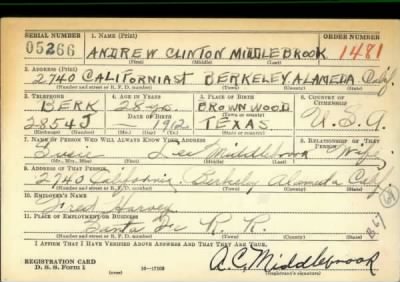 SERIAL NUMBER 1. NAME (Print) ORDER NUMBER
05266 ANDREW CLINTON MIDDLEBROOK 1481
(First) (Middle) (Last)
2. ADDRESS (Print)
2740 CALIFORNIA ST BERKELEY ALAMEDA Calif.
(Number and street or R. F. D. number) (Town) (County) (State)
3. TELEPHONE 4. AGE IN YEARS 5. PLACE OF BIRTH 6. COUNTRY OF CITIZENSHIP
BERK 28 yrs. BROWNWOOD
DATE OF BIRTH (Town or county)
2854J 1912 TEXAS U.S.A.
(Exchange) (Number) (Mo.) (Day) (Yr.) (State or country)
7. NAME OF PERSON WHO WILL ALWAYS KNOW YOUR ADDRESS 8. RELATIONSHIP OF THAT PERSON
Lee Middlebrook Wife
(Mr., Mrs., Miss) (First) (Middle) (Last)
9. ADDRESS OF THAT PERSON
2740 California Berkeley Alameda Calif
(Number and street or R. F. D. number) (Town) (County) (State)
10. EMPLOYER'S NAME
Fred Harvey
11. PLACE OF EMPLOYMENT OR BUSINESS
Santa Fe R. R.
(Number and street or R. F. D. number) (Town) (County) (State)
I AFFIRM THAT I HAVE VERIFIED ABOVE ANSWERS AND THAT THEY ARE TRUE.
REGISTRATION CARD
D. S. S. Form 1 16—17105 A.C. Middlebrook
(Registrant's signature)